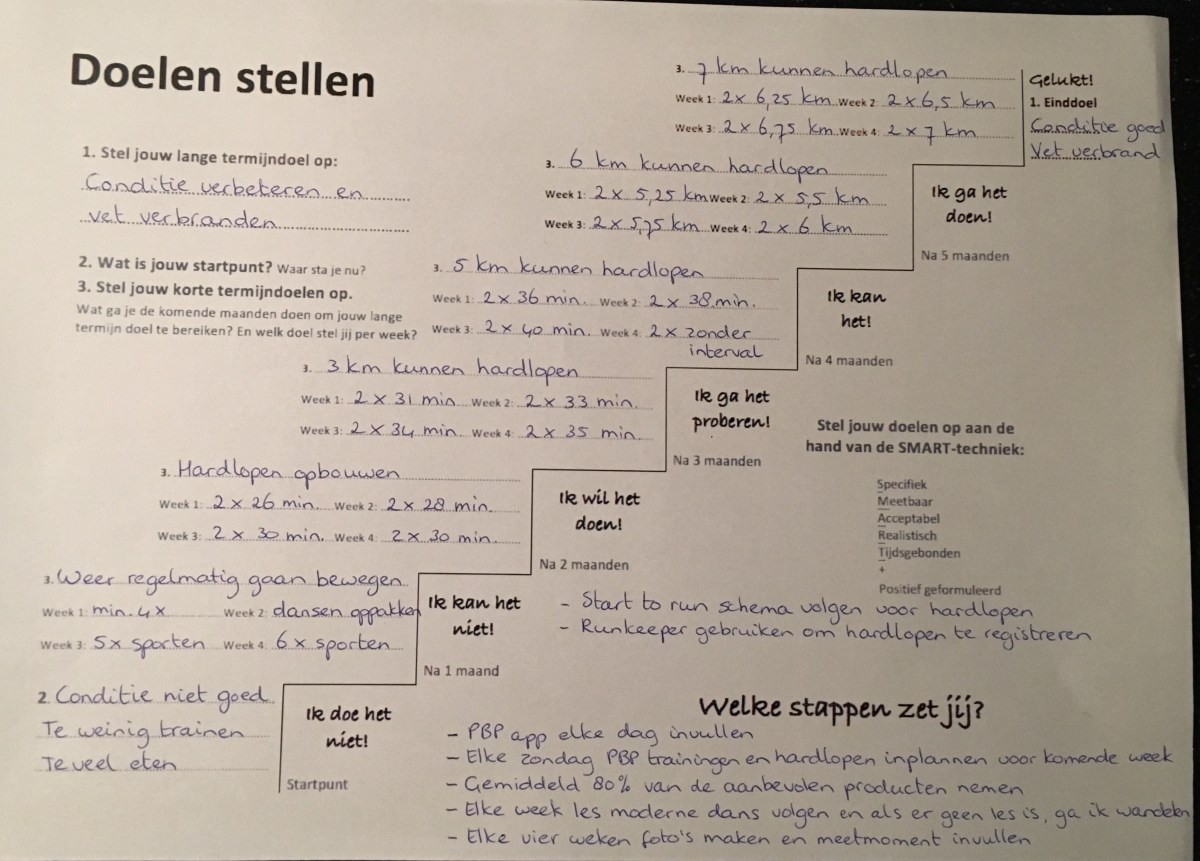 Doelen stellen
1. Stel jouw lange termijndoel op:
Conditie verbeteren en
vet verbranden
2. Wat is jouw startpunt? Waar sta je nu?
3. Stel jouw korte termijndoelen op.
Wat ga je de komende maanden doen om jouw lange
termijn doel te bereiken? En welk doel stel jij per week?
3. 7 km kunnen hardlopen
Week 1: 2 x 6,25 km Week 2: 2 x 6,5 km
Week 3: 2 x 6,75 km Week 4: 2 x 7 km
Gelukt!
1. Einddoel
Conditie goed
Vet verbrand
3. 6 km kunnen hardlopen
Week 1: 2 x 5,25 km Week 2: 2 x 5,5 km
Week 3: 2 x 5,75 km Week 4: 2 x 6 km
Ik ga het
doen!
Na 5 maanden
3. 5 km kunnen hardlopen
Week 1: 2 x 36 min. Week 2: 2 x 38 min.
Week 3: 2 x 40 min. Week 4: 2 x zonder
interval
Ik kan
het!
Na 4 maanden
3. 3 km kunnen hardlopen
Week 1: 2 x 31 min Week 2: 2 x 33 min.
Week 3: 2 x 34 min. Week 4: 2 x 35 min.
Ik ga het
proberen!
Na 3 maanden
Stel jouw doelen op aan de
hand van de SMART-techniek:
Specifiek
Meetbaar
Acceptabel
Realistisch
Tijdsgebonden
+
Positief geformuleerd
3. Hardlopen opbouwen
Week 1: 2 x 26 min. Week 2: 2 x 28 min.
Week 3: 2 x 30 min. Week 4: 2 x 30 min.
Ik wil het
doen!
Na 2 maanden
3. Weer regelmatig gaan bewegen
Week 1: min. 4x Week 2: dansen oppakken
Week 3: 5x sporten Week 4: 6 x sporten
Ik kan het
niet!
Na 1 maand
- Start to run schema volgen voor hardlopen
- Runkeeper gebruiken om hardlopen te registreren
2. Conditie niet goed
Te weinig trainen
Te veel eten
Ik doe het
niet!
Startpunt
Welke stappen zet jij?
- PBP app elke dag invullen
- Elke zondag PBP trainingen en hardlopen inplannen voor komende week
- Gemiddeld 80% van de aanbevolen producten nemen
- Elke week les moderne dans volgen en als er geen les is, ga ik wandelen
- Elke vier weken foto's maken en meetmoment invullen